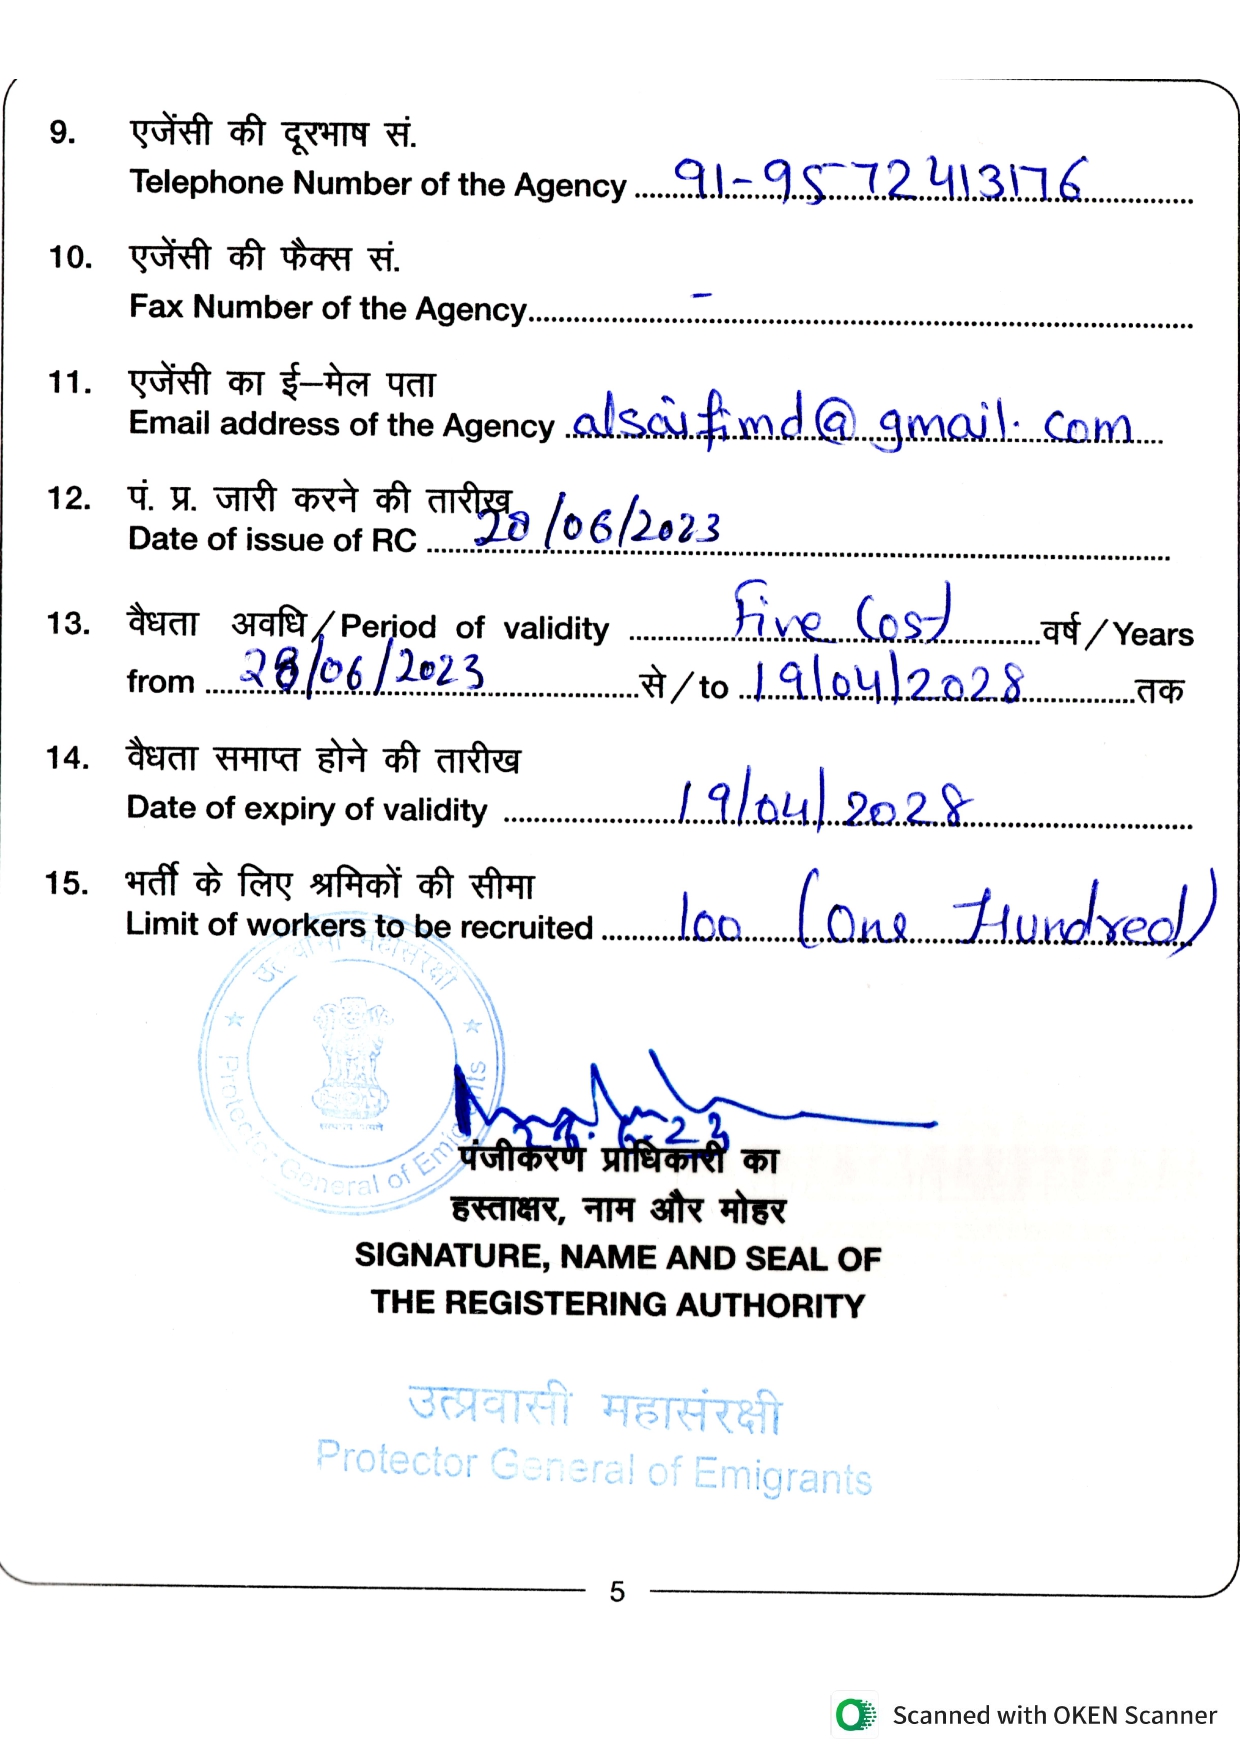 9. एजेंसी की दूरभाष सं.
Telephone Number of the Agency 91-9572413176
10. एजेंसी की फैक्स सं.
Fax Number of the Agency -
11. एजेंसी का ई–मेल पता
Email address of the Agency alsaifimd@gmail.com
12. पं. प्र. जारी करने की तारीख
Date of issue of RC 28/06/2023
13. वैधता अवधि / Period of validity Five वर्ष / Years
from 28/06/2023 से / to 19/04/2028 तक
14. वैधता समाप्त होने की तारीख
Date of expiry of validity 19/04/2028
15. भर्ती के लिए श्रमिकों की सीमा
Limit of workers to be recruited 100 (One Hundred)
महासंरक्षी
Protector General of Emigrants
पंजीकरण प्राधिकारी का
हस्ताक्षर, नाम और मोहर
SIGNATURE, NAME AND SEAL OF
THE REGISTERING AUTHORITY
उत्प्रवासी महासंरक्षी
Protector General of Emigrants
5
Scanned with OKEN Scanner